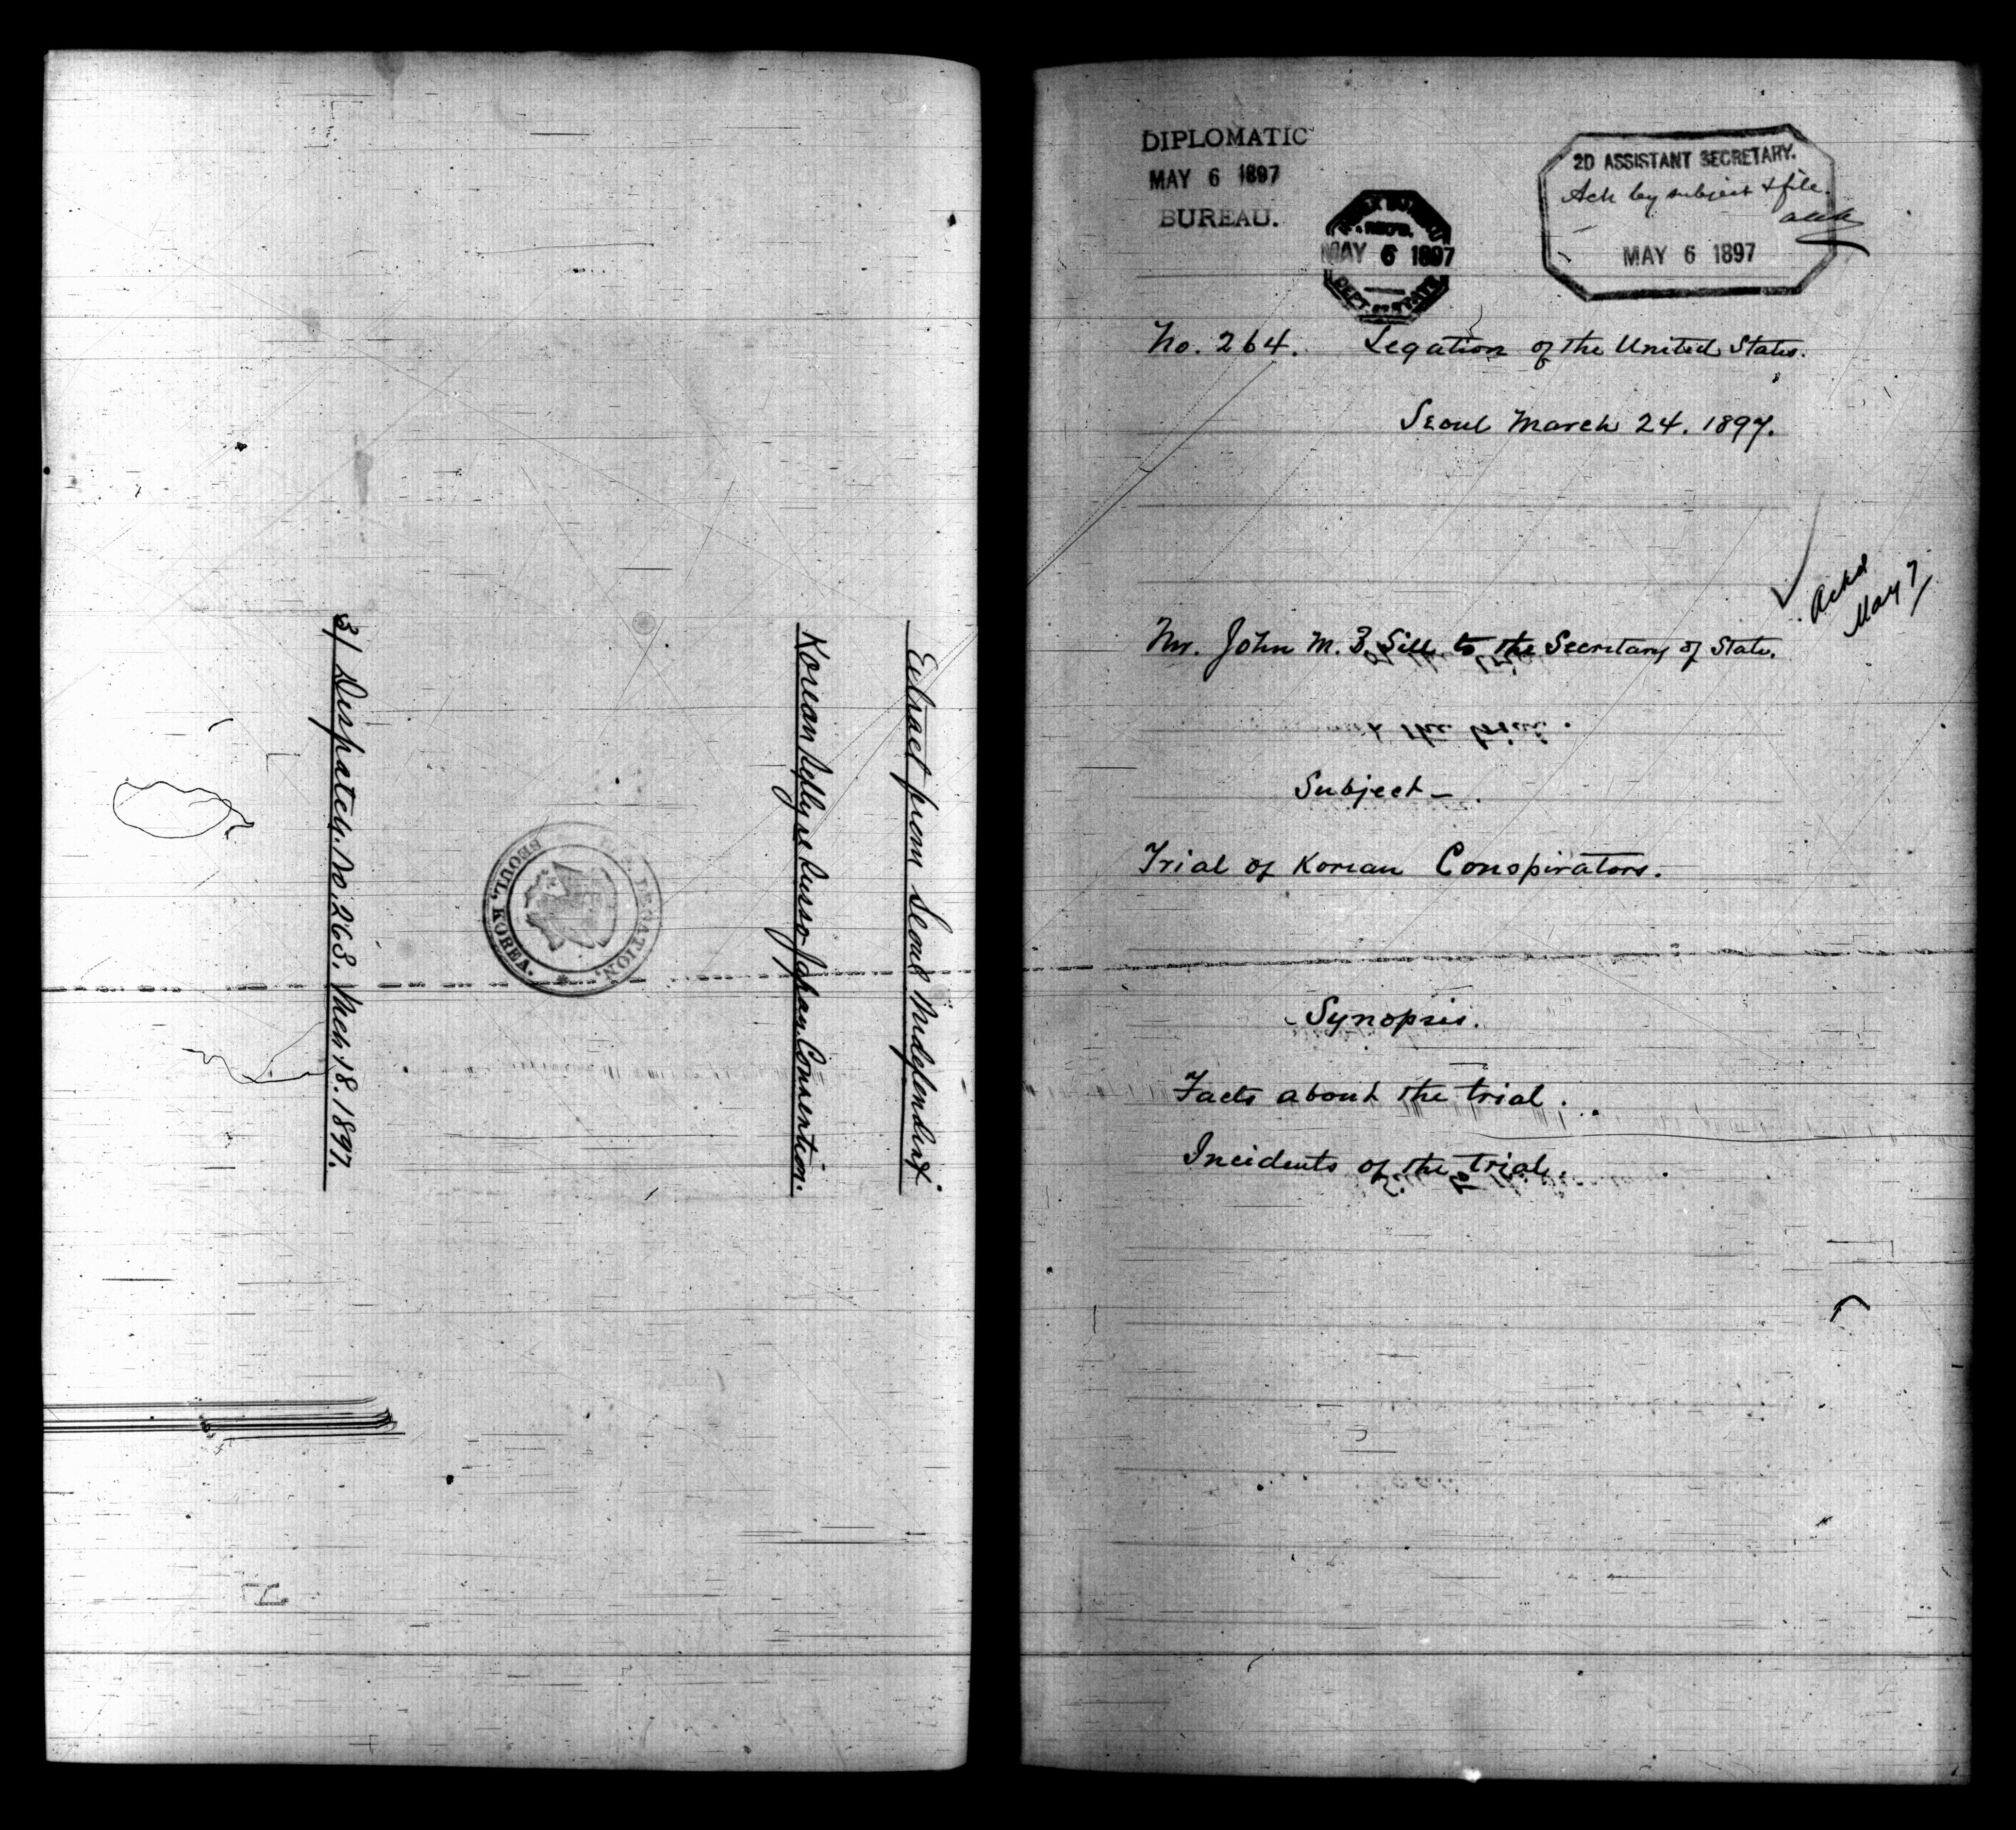 Extract from Seoul Independent.
Korean Reply re Russo-Japan Convention.
U.S. LEGATION,
SEOUL, KOREA.
3/ Dispatch. No. 263. Mch 18. 1897.
DIPLOMATIC
MAY 6 1897
BUREAU.
INDEX BUREAU
REC'D.
MAY 6 1897
DEPT OF STATE
2D ASSISTANT SECRETARY.
Ack by subject & file.
MAY 6 1897
No. 264. Legation of the United States.
Seoul March 24. 1897.
Ackd
May 7/
Mr. John M. B. Sill to the Secretary of State.
Subject—
Trial of Korean Conspirators.
Synopsis.
Facts about the trial.
Incidents of the trial.